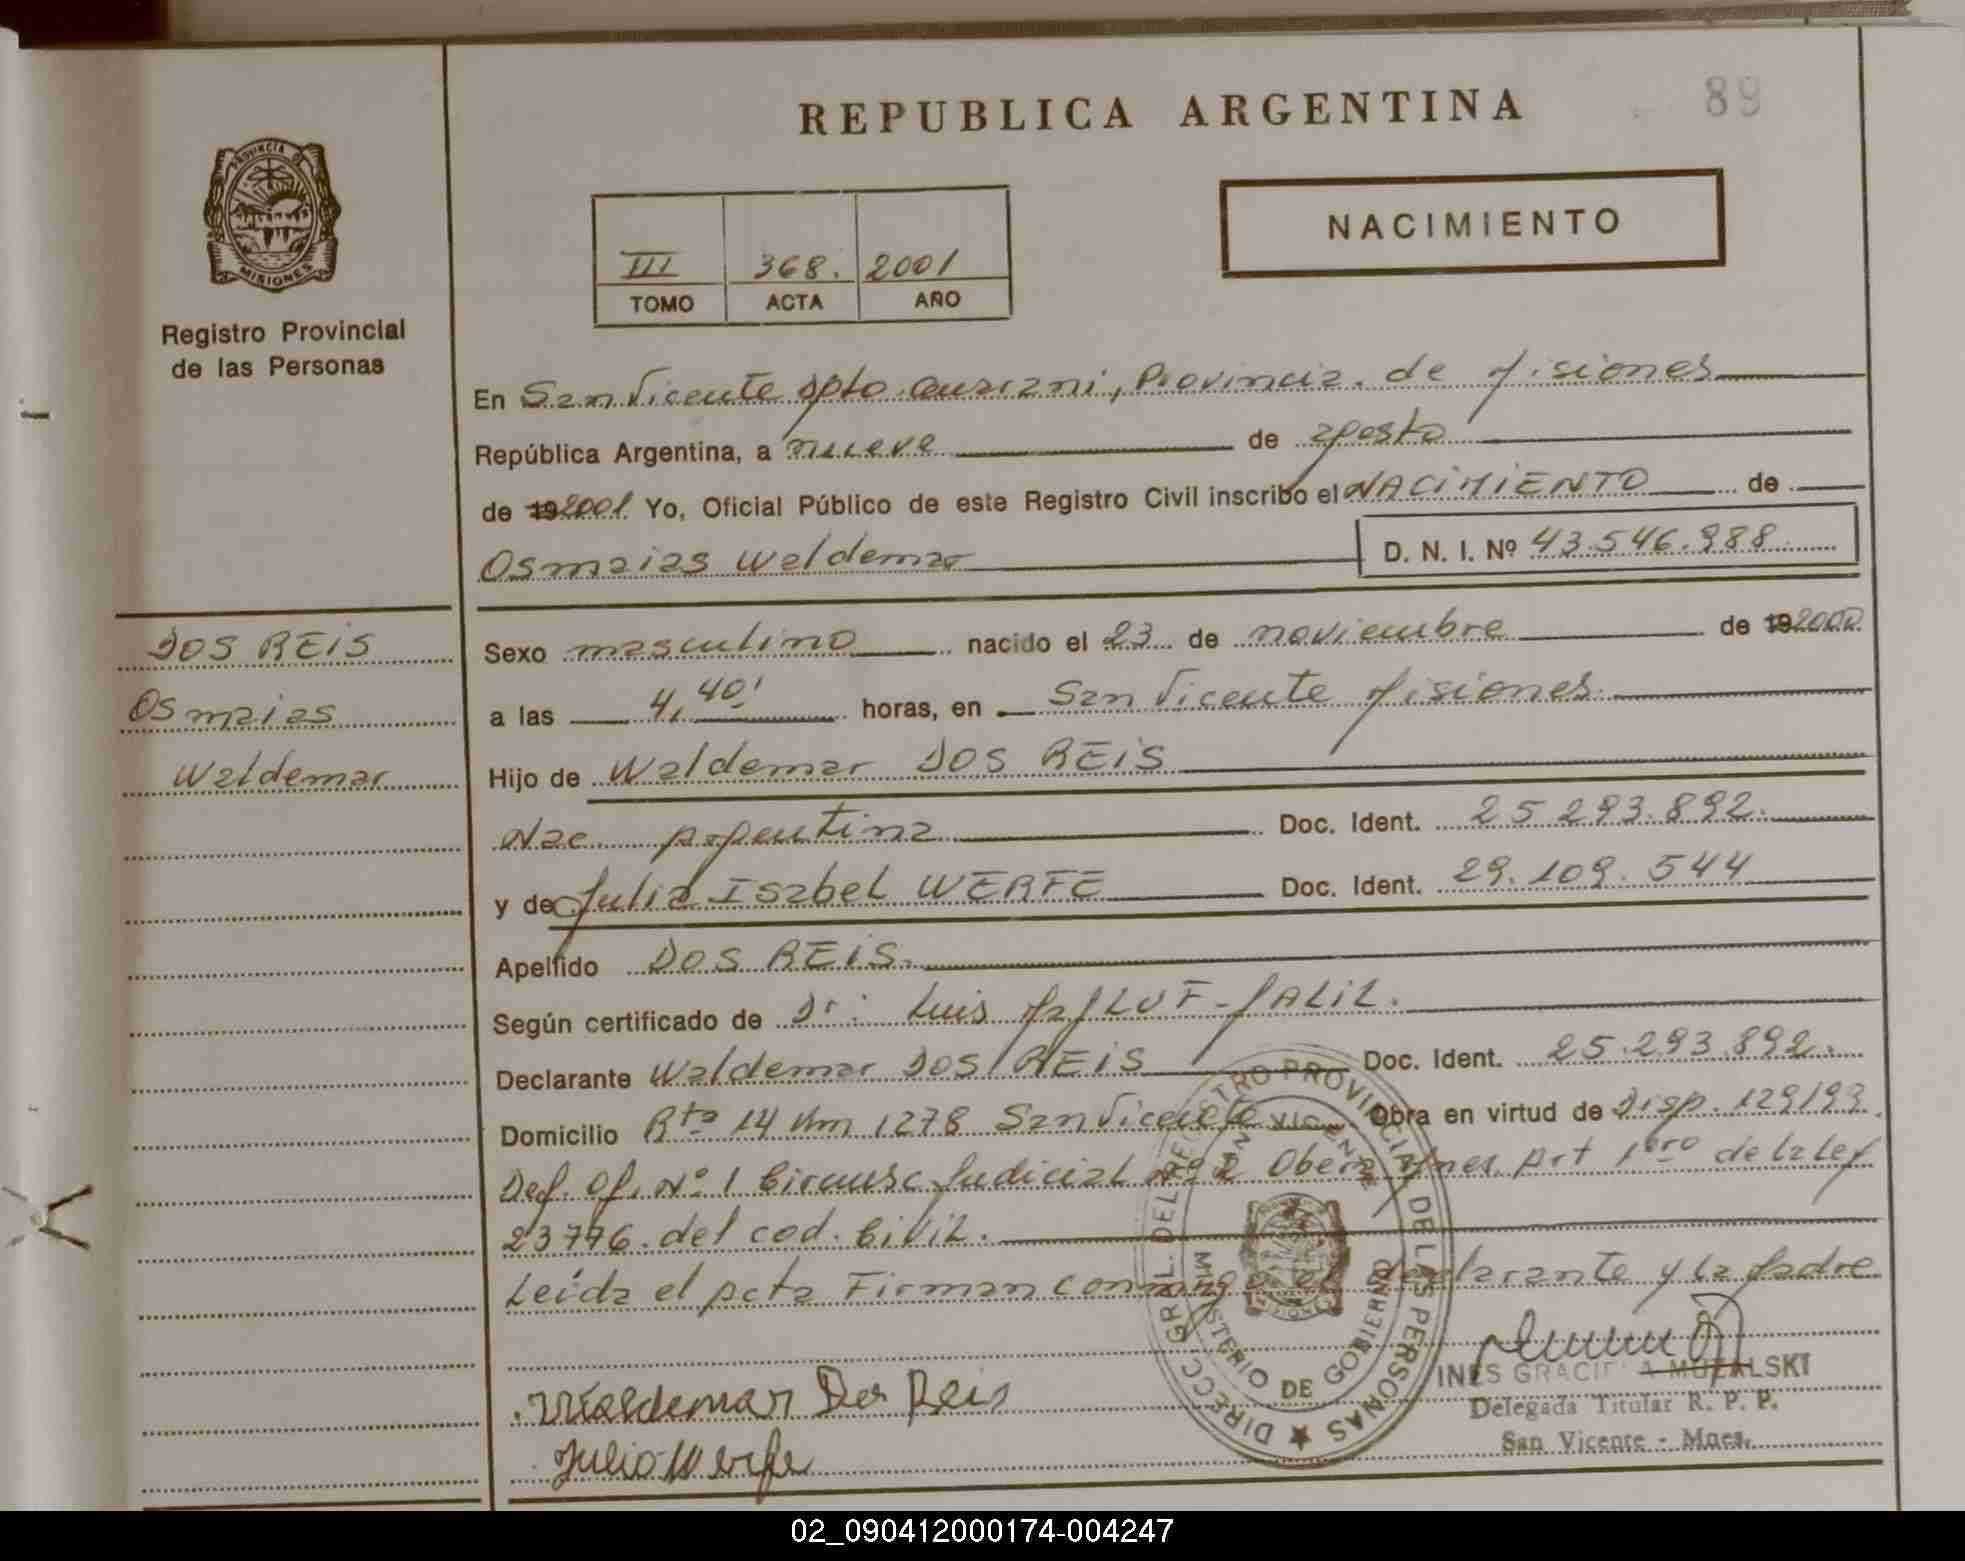 REPUBLICA ARGENTINA
89
PROVINCIA D
MISIONES
Registro Provincial
de las Personas
III 368. 2001
TOMO ACTA AÑO
NACIMIENTO
En San Vicente Dpto. Guaraní, Provincia de Misiones
República Argentina, a nueve de agosto
de 19 2001 Yo, Oficial Público de este Registro Civil inscribo el NACIMIENTO de
Osmaias Waldemar D. N. I. Nº 43.546.988
DOS REIS
Osmaias
Waldemar
Sexo masculino nacido el 23 de noviembre de 19 2000
a las 4,40' horas, en San Vicente Misiones
Hijo de Waldemar DOS REIS
Nac Argentina Doc. Ident. 25.293.892.
y de Julia Isabel WERFE Doc. Ident. 29.109.544
Apellido DOS REIS.
Según certificado de Dr: Luis JALIL.
Declarante Waldemar DOS REIS Doc. Ident. 25.293.892.
Domicilio Rta 14 Km 1278 San Vicente Obra en virtud de Disp. 129/93
Def. Of. Nº 1 Circunsc Judicial Nº 2 Obera Mnes. Art 1ero de la Ley
23776. del cod. Civil.
Leída el acta Firman conmigo el declarante y la Madre
Waldemar Dos Reis
Julia Werfe
DIRECC GRAL. DEL REGISTRO PROVINCIAL DE LAS PERSONAS
SAN VICENTE
MINISTERIO DE GOBIERNO
INES GRACI A MUZALSKI
Delegada Titular R. P. P.
San Vicente - Mnes.
02_090412000174-004247